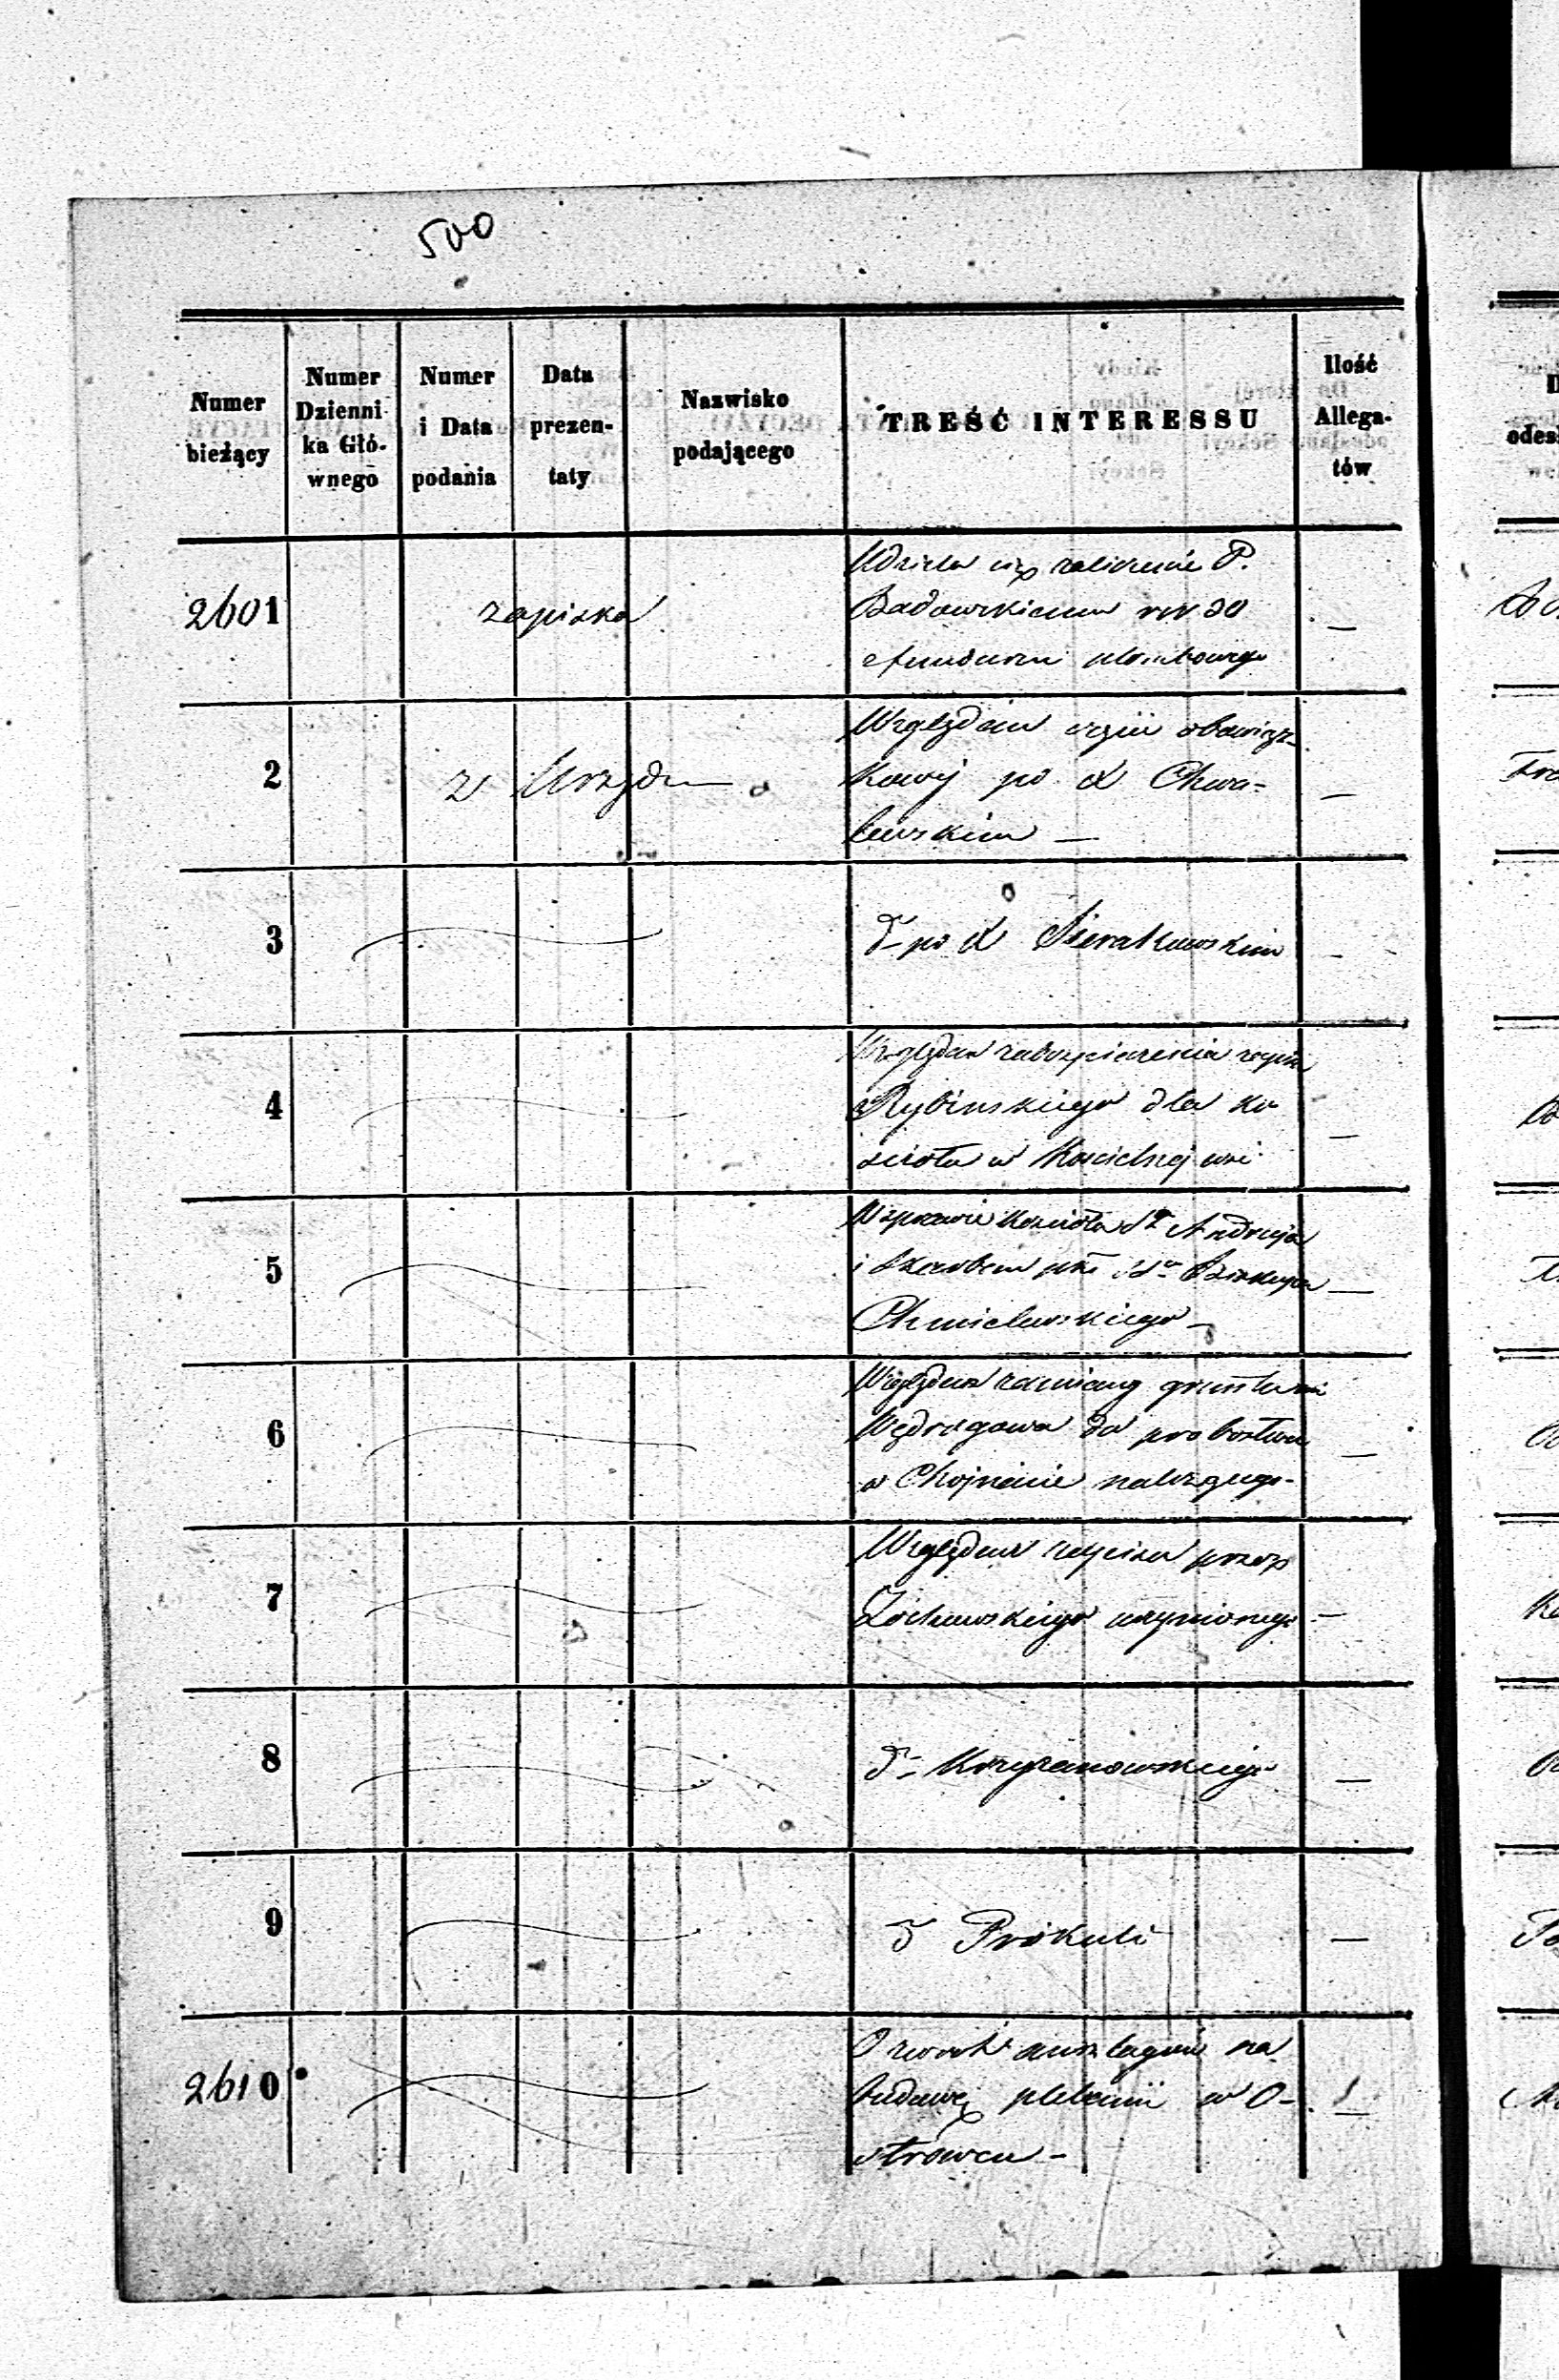 500
Numer bieżący
Numer Dzienni ka Głó- wnego
Numer i Data podania
Data prezen- taty
Nazwisko podającego
TREŚĆ INTERESSU
Ilość Allega- tów
2601 zapiska Udziela się zaliczenie P.
Badowskiemu rsr 30
z funduszu
2 z Urzędu Względem obowiąz-
kowej po X Chwa-
lewskim —
3 d- po X Sierakowskim
4 Względem zabezpieczenia zapisu
Rybinskiego dla ko
scioła w Koscielnej wsi
5 W sprawie Kościoła Sgo Andrzeja
i Skarbem Biskupa
Chmielewskiego —
6 Względem zamiany gruntu
do probostwa
w Chojnacie należącego -
7 Względem zapisu przez
Żochowskiego uczynionego —
8 d- Krzyżanowskiego —
9 d Prokuli —
2610 O zwrot anszlagów na
budowę plebanii w O-
strowcu - 1